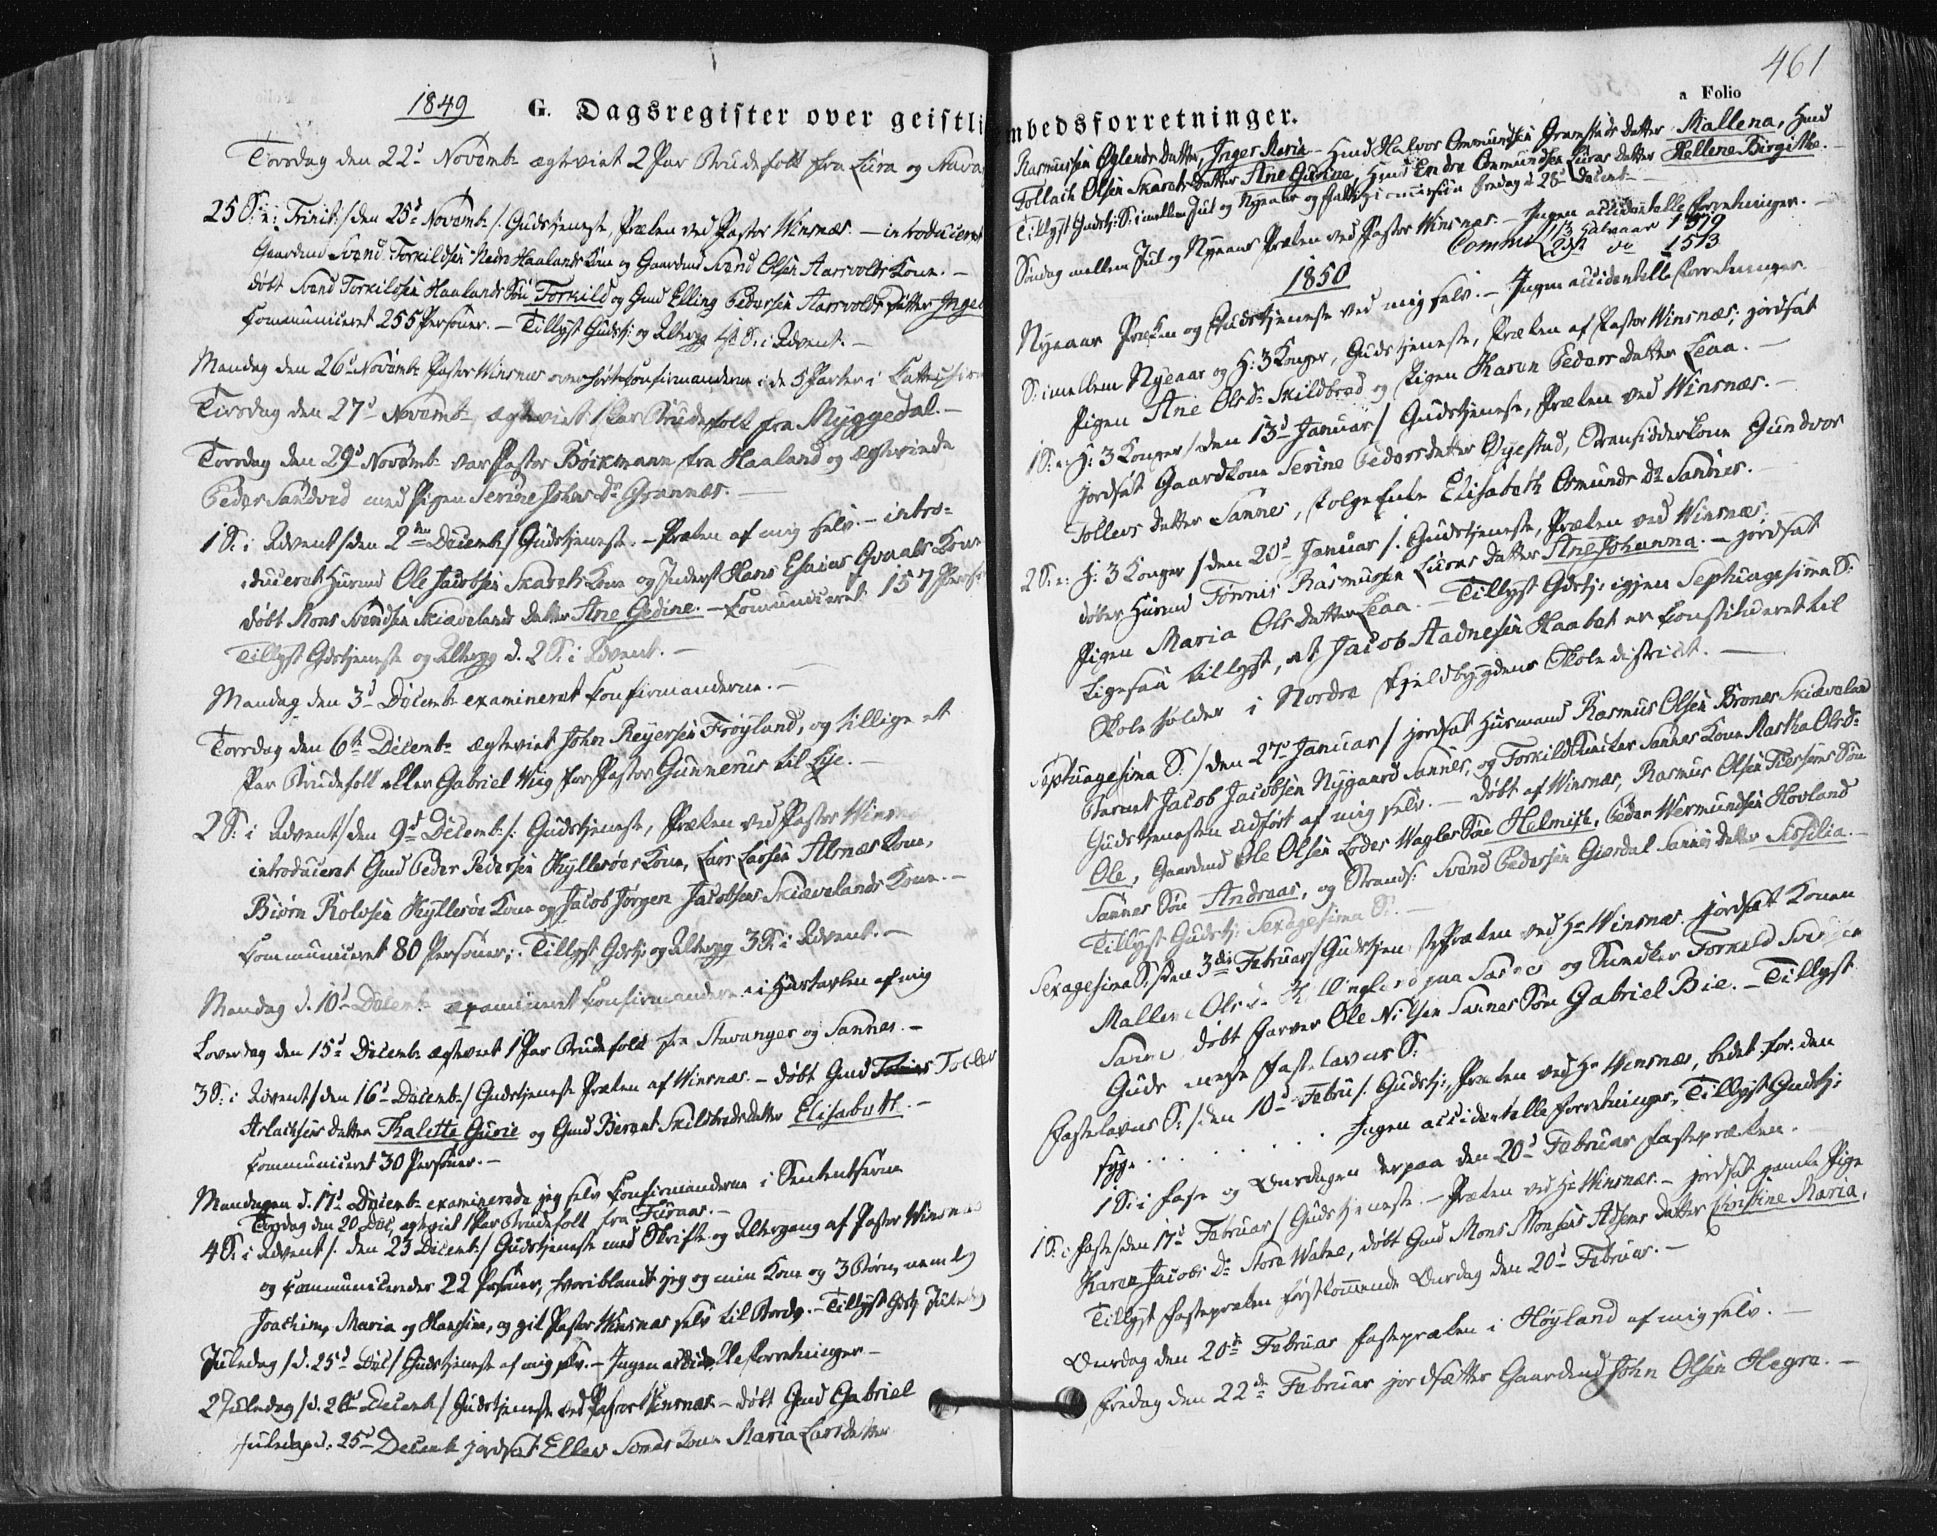 1849
G. Dagsregister over geistli
Torsdag den 22d Novemb: ægteviet 2 Par Brudefolk fra Lura og
25 S: e: Trinit: /den 25d Novemb:/ Gudstjeneste, Præken ved Pastor Winsnæs. — introduceret
Gaardmd Svend Torkildsen Nedre Haalands Kone og Gaardmd Svend Olsen Aarsvolds Kone. —
døbt Svend Torkildsen Haalands Søn Torkild og Gmd Elling Pedersen Aarsvolds Datter
Communiceret 255 Personer. — Tillyst Gudstj: og Alterg. i Advent. —
Mandag den 26d Novemb: Pastor Winsnæs overhørte Confirmanderne i de 5 Parter i
Tirsdag den 27d Novemb: ægteviet 1 Par Brudefolk fra Myggedal. —
Torsdag den 29d Novemb: var Pastor Böckmann fra Haaland og ægteviede
Peder Sandved med Pigen Serine Johns Dr Grannæs. —
1 S: i Advent /den 2den Decemb:/ Gudstjeneste. — Præken af mig selv. — intro-
duceret Husmd Ole Jacobsen Skarets Kone og Inderst Hans Esaias Gvaals Kone
døbt Mons Svendsen Skiævelands Datter Ane Gedine. — Communiceret 157
Tillyst Gdstjeneste og Alterg. d. 2 S: i Advent. —
Mandag den 3d Decemb: examineret Confirmanderne. —
Torsdag den 6te Decemb: ægteviet John Reyersen Frøyland, og tillige et
Par Brudefolk eller Gabriel Wiig for Pastor Gunnerus til Lye. —
2 S: i Advent /den 9d Decemb:/: Gudstjeneste, Præken ved Pastor
introduceret Gmd Peder Pedersen Hyllesøes Kone, Lars Larsen Alsnæs Kone,
Biørn Rolvsen Hyllesøe Kone og Jacob Jørgen Jacobsens Skiævelands Kone. —
Communiceret 80 Personer; Tillyst Gdstj: og Alterg. 3 S: i Advent. —
Mandag d. 10d Decemb: examineret Confirmanderne i af mig
Løverdag den 15d Decemb: ægteviet 1 Par Brudefolk fra Stavanger og Sannes. —
3 S: i Advent /den 16d Decemb:/ Gudstjeneste Præken af Winsnæs. — døbt Gmd
Aslachsens Datter Thalette Gurie og Gmd Berent Skilbreds Datter Elisabeth. —
Communiceret 30 Personer. —
Mandagen d. 17d Decemb: examinerede jeg selv Confirmanderne i
Torsdag den 20 Dec, ægteviet 1 Par Brudefolk fra —
4 S: i Advent /: den 23 Decemb:/ Gudstjeneste med Skrifte og Altergang af Pastor
og Communicerede 22 Personer, hvoriblandt jeg og min Kone og 3 Børn, nemlig
Joachim, Maria og Hansine, og gik Pastor Winsnæs selv til Bords. — Tillyst Gdstj:
Juledag /d. 25d Dec:/ Gudstjeneste af mig selv. — Ingen accidentelle forretninger —
2 Juledag /d. 26d Decemb:/ Gudstjeneste ved Pastor Winsnæs. — døbt Gmd Gabriel
Juledag d. 25d Decemb: jordsat Maria Larsdatter
461
a Folio
mbedsforretninger.
Rasmussen Øglends Datter, Inger Maria — Husmd Halvor Ommundsen Gramstads Datter Mallena, Husmd
Tollach Olsen Skarets Datter Ane Gurine, Husmd Endre Ommundsen Luras Datter Hellene Birgitthe. —
Tillyst Gudstj: S: imellem Jul og Nyeaar og fredag d 28d Decemb: —
Søndag mellem Jul og Nyeaar Præken ved Pastor Winsnæs. — Ingen accidentelle forretninger. —
Commu: 1ste Halvaar
2det do 1513
1850
Nyeaar Præken og Gudstjeneste ved mig selv. — Ingen accidentelle forretninger.
S: imellem Nyeaar og H: 3 Konger, Gudstjeneste, Præken af Pastor Winsnæs; jordsat
Pigen Ane Ols Dr Skildbred og Pigen Karen Peders Datter Leaa. —
1 S: e: H: 3 Konger /den 13d Januar/ Gudstjeneste, Præken ved Winsnæs. —
jordsat Gaardkone Serine Peders datter Øyestad, Strandsidderkone Gundvor
Tollevs datter Sannes, Enke Elisabeth Osmunds Dr Sannes. —
2 S: e: H: 3 Konger /den 20d Januar /. Gudstjeneste, Præken ved Winsnæs.
døbt Husmd Tønnes Rasmusen Luras datter Ane Johanna. — jordsat
Pigen Maria Ols Datter Leaa. — Tillyst Gdstj: igjen Septuagesima S:
Ligesaa tillyst, at Jacob Aadnesen Haabet er Constitueret til
Skoleholder i Nordre Fjeldbygdens Skoledistrict. —
Septuagesima S: /den 27d Januar/ jordsat Husmand Rasmus Olsen Brones Skiæveland
Barnet Jacob Jacobsen Nygaard Sannes, og Torkild Sannes Kone Martha Ols Dr
Gudstjenesten udført af mig selv. — Døbt af Winsnæs, Rasmus Olsen Søn
Ole, Gaardmd Ole Olsen Lodes Wagles Søn Helmik, Peder Wermundsen Hovland
Sannes Søn Andreas, og Strands: Svend Pedersen Giesdal Sannes Datter Sissilia. —
Tillyst Gudstj: Sexagesima S: —
Sexagesima S: /den 3die Februar/ Gudstjeneste Præken ved Hr Winsnæs. jordsat Konen
Mallene Ols Dr paa og Torvald
døbt Garver Ole Nilsen Sannes Søn Gabriel Bie. — Tillyst
Guds Fastelavns S:
Fastelavns S: /den 10d Febru/. Gudstj:, Præken ved Hr Winsnæs, bedet for den
syge . . . . . . . Ingen accidentelle forretninger, Tillyst Gudstj:
1 S: i Faste og Onsdagen derpaa den 20d Februar fastepræken.
1 S: i Faste /den 17d Februar/ Gudstjeneste. — Præken ved Hr Winsnæs. — jordsat gamle Pige
Karen Jacobs Dr Store Watne, døbt Gmd Mons Monsens Datter Christine Maria,
Tillyst Fastepræken førstkommende Onsdag den 20d Februar. —
Onsdag den 20de Februar fastepræken i Høyland af mig selv. —
Fredag den 22de Februar jordsættes Gaardmd John Olsen Hegre. —